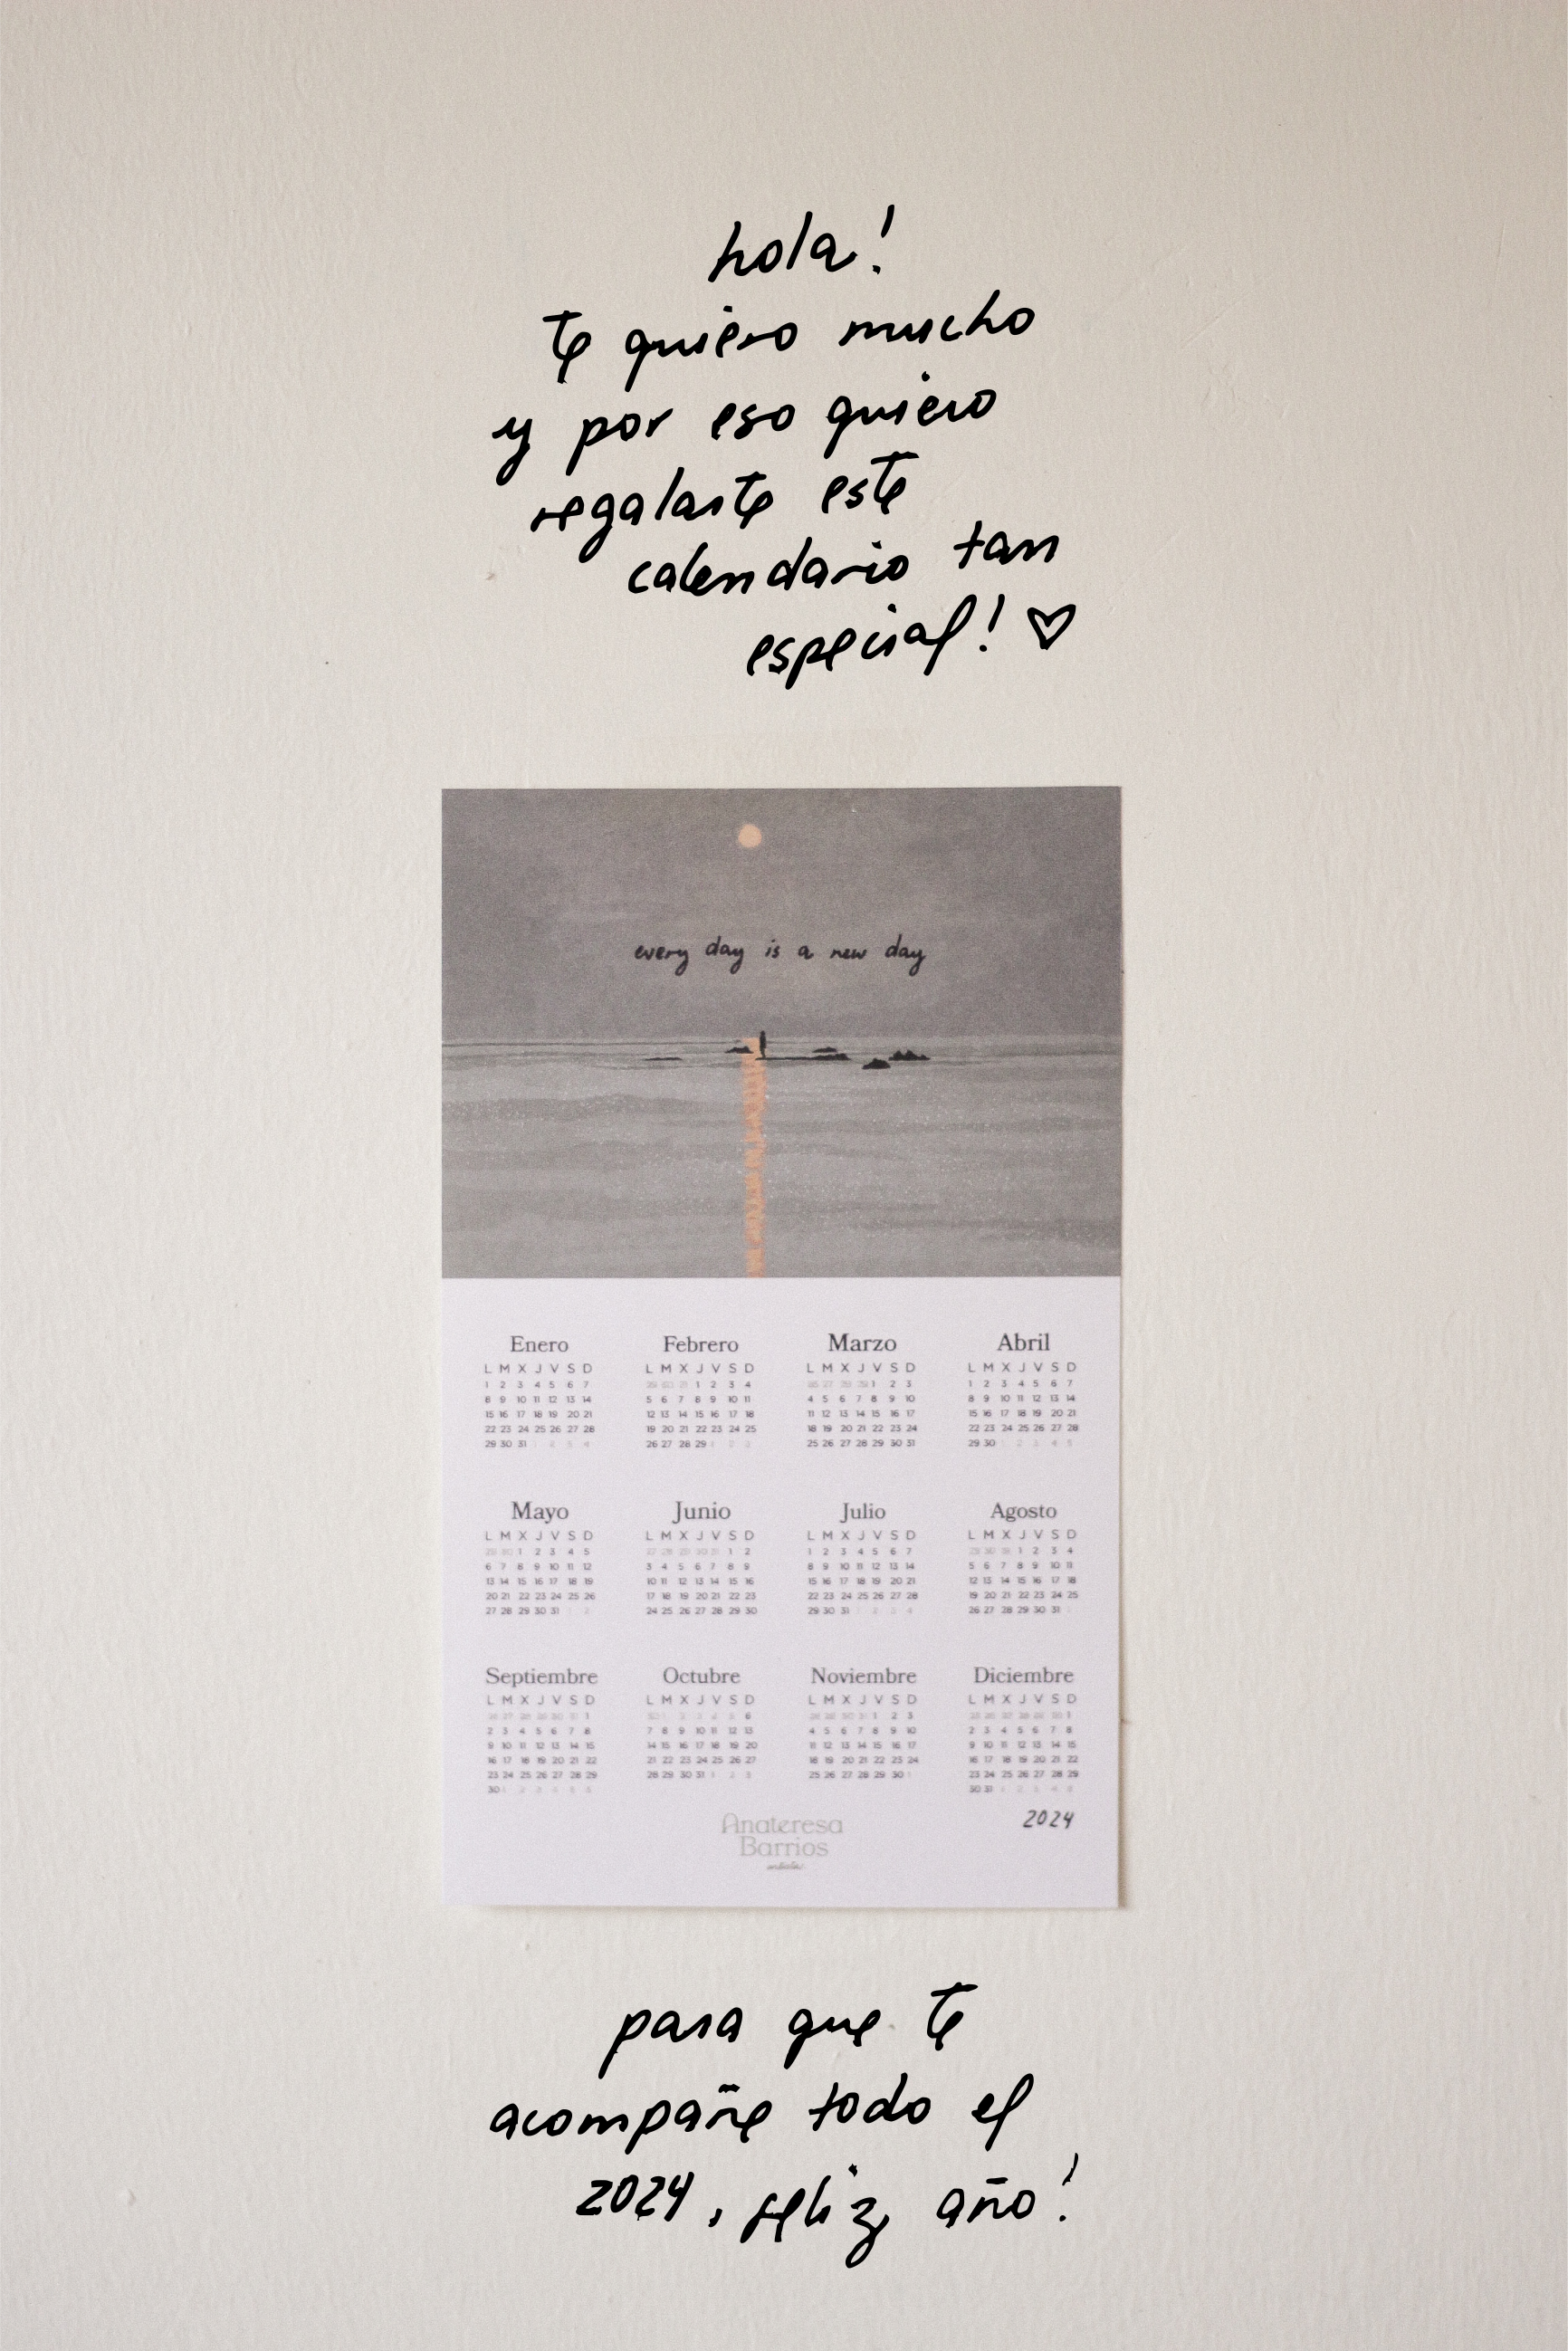 hola!
te quiero mucho
y por eso quiero
regalarte este
calendario tan
especial! ♡
every day is a new day
Enero Febrero Marzo Abril
L M X J V S D L M X J V S D L M X J V S D L M X J V S D
1 2 3 4 5 6 7 29 30 31 1 2 3 4 26 27 28 29 1 2 3 1 2 3 4 5 6 7
8 9 10 11 12 13 14 5 6 7 8 9 10 11 4 5 6 7 8 9 10 8 9 10 11 12 13 14
15 16 17 18 19 20 21 12 13 14 15 16 17 18 11 12 13 14 15 16 17 15 16 17 18 19 20 21
22 23 24 25 26 27 28 19 20 21 22 23 24 25 18 19 20 21 22 23 24 22 23 24 25 26 27 28
29 30 31 1 2 3 4 26 27 28 29 1 2 3 25 26 27 28 29 30 31 29 30 1 2 3 4 5
Mayo Junio Julio Agosto
L M X J V S D L M X J V S D L M X J V S D L M X J V S D
29 30 1 2 3 4 5 27 28 29 30 31 1 2 1 2 3 4 5 6 7 29 30 31 1 2 3 4
6 7 8 9 10 11 12 3 4 5 6 7 8 9 8 9 10 11 12 13 14 5 6 7 8 9 10 11
13 14 15 16 17 18 19 10 11 12 13 14 15 16 15 16 17 18 19 20 21 12 13 14 15 16 17 18
20 21 22 23 24 25 26 17 18 19 20 21 22 23 22 23 24 25 26 27 28 19 20 21 22 23 24 25
27 28 29 30 31 1 2 24 25 26 27 28 29 30 29 30 31 1 2 3 4 26 27 28 29 30 31
Septiembre Octubre Noviembre Diciembre
L M X J V S D L M X J V S D L M X J V S D L M X J V S D
1 6 1 2 3 1
2 3 4 5 6 7 8 7 8 9 10 11 12 13 4 5 6 7 8 9 10 2 3 4 5 6 7 8
9 10 11 12 13 14 15 14 15 16 17 18 19 20 11 12 13 14 15 16 17 9 10 11 12 13 14 15
16 17 18 19 20 21 22 21 22 23 24 25 26 27 18 19 20 21 22 23 24 16 17 18 19 20 21 22
23 24 25 26 27 28 29 28 29 30 31 1 2 3 25 26 27 28 29 30 23 24 25 26 27 28 29
30 30 31
2024
Anateresa
Barrios
artista
para que te
acompañe todo el
2024, feliz año!